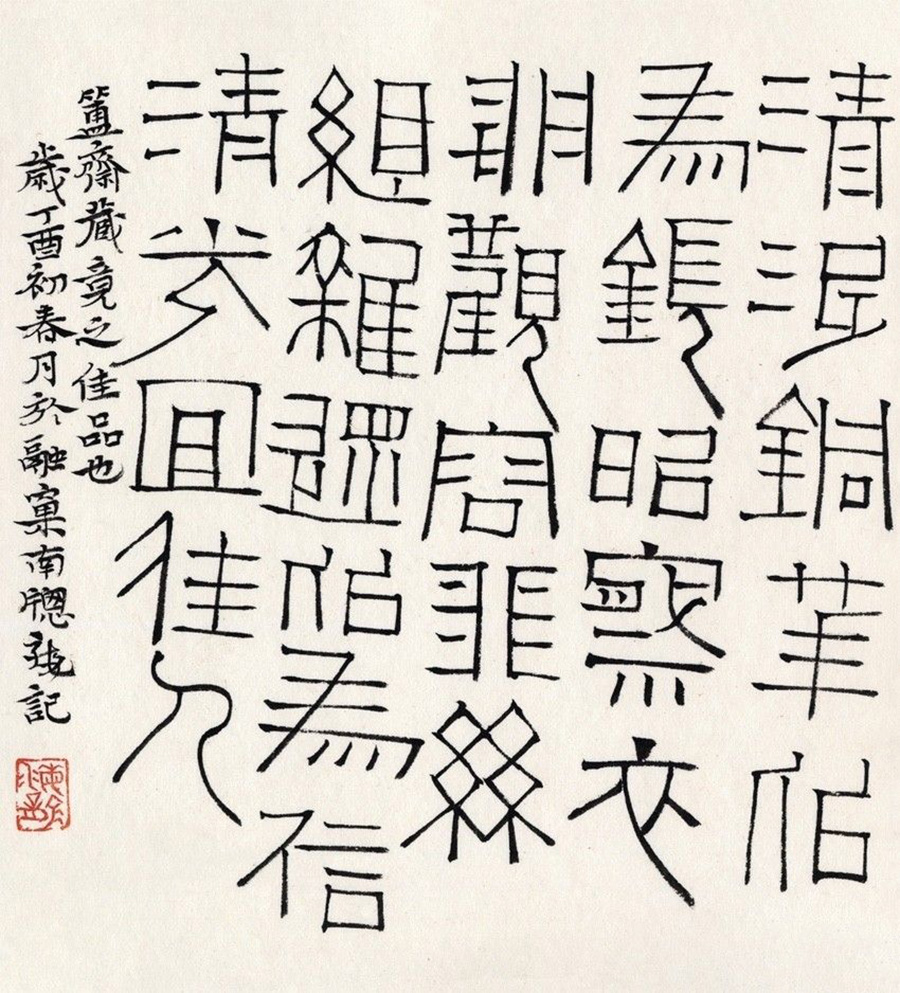 清銅華以
為鏡昭察衣
服觀容貌絲
組雜遝以為信
清光宜佳人
簠齋藏竟之佳品也
歲丁酉初春月於融窠南牕記